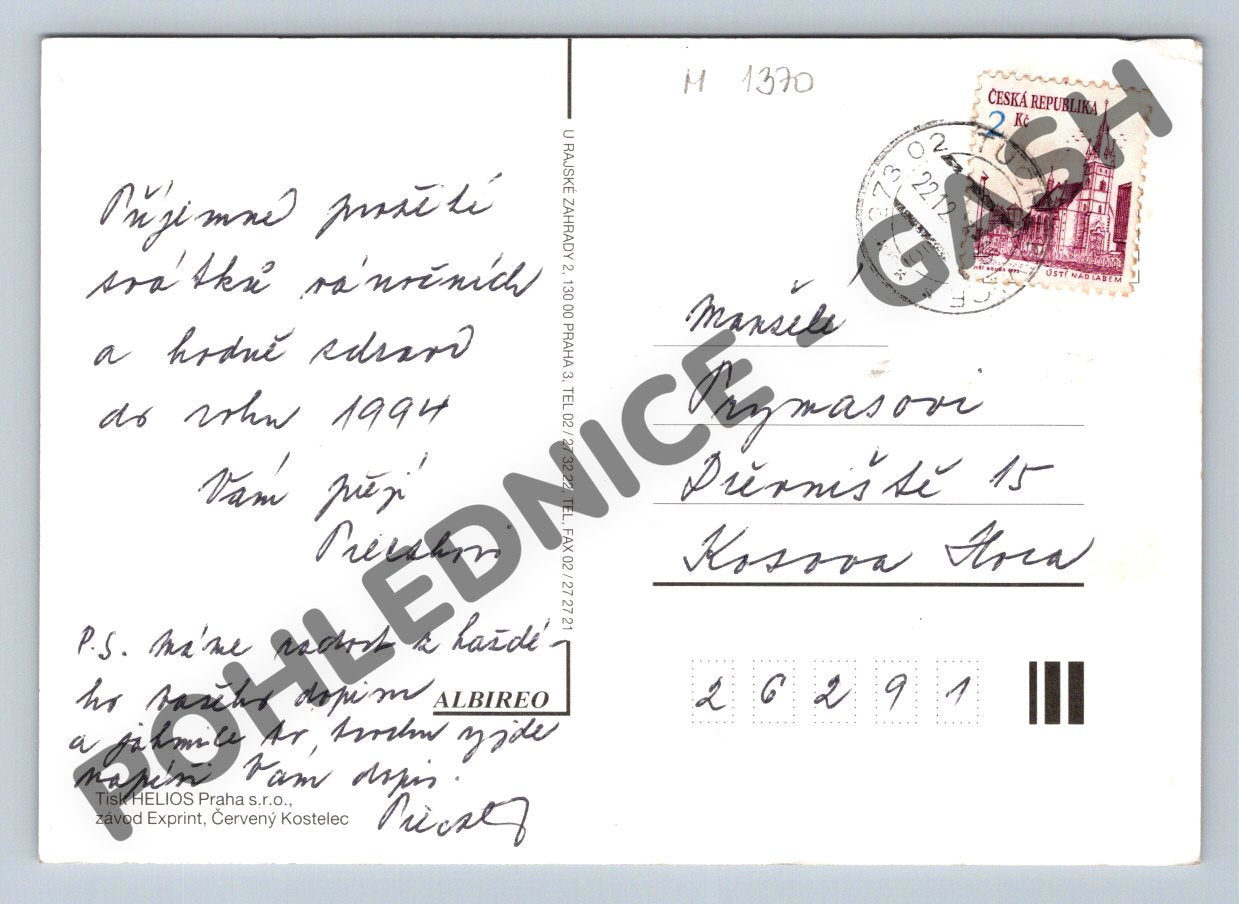 M 1370
ČESKÁ REPUBLIKA
2 Kč
ÚSTÍ NAD LABEM
273 02
22.12
Příjemné prožití
svátků vánočních
a hodně zdraví
do roku 1994
Vám přejí
P.S. Máme radost z každé-
ho vašeho dopisu
a jakmile to, trochu vyjde
napíši Vám dopis.
Manželé
Prymasovi
Dvorniště 15
Kosova Hora
26291
U RAJSKÉ ZAHRADY 2, 130 00 PRAHA 3, TEL 02 / 27 32 22, TEL, FAX 02 / 27 27 21
ALBIREO
Tisk HELIOS Praha s.r.o.,
závod Exprint, Červený Kostelec
POHLEDNICE - GASH